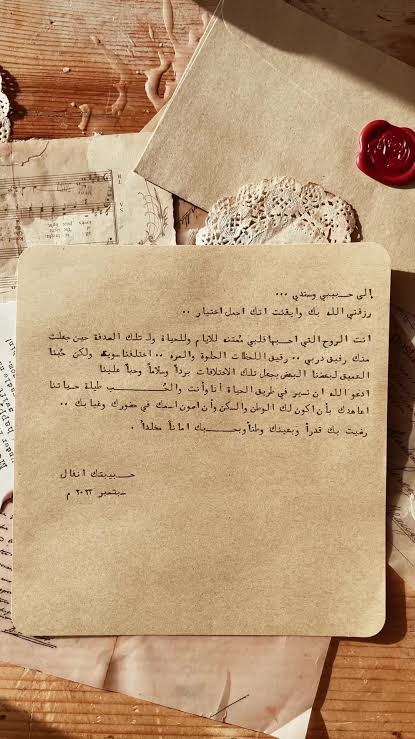 إلى حـــبيبي وسندي ...
رزقني الله بك وايقنت انك اجمل اختيار ..
انت الروح التي احبها قلبي مُمتنه للايام وللحياة ولـ تلك الصدفة حين جعلت
منك رفيق دربي .. رفيق اللحظات الحلوة والمره .. اختلفنا سويه ولكن حُبنا
العميق لبعضنا البعض يجعل تلك الاختلافات برداً وسلاماً وحباً علينا
ادعو الله ان نسير في طريق الحياة أنا وأنت والحُـــــب طيلة حياتنا
اعاهدك بأن اكون لك الوطن والسكن وأن اصون اسمك في حضورك وغيابك ..
رضيت بك قدراً وبعينك وطناً وبحـــبك اماناً مخلداً .
حـــبيبتك انفال
سبتمبر ٢٠٢٣ م